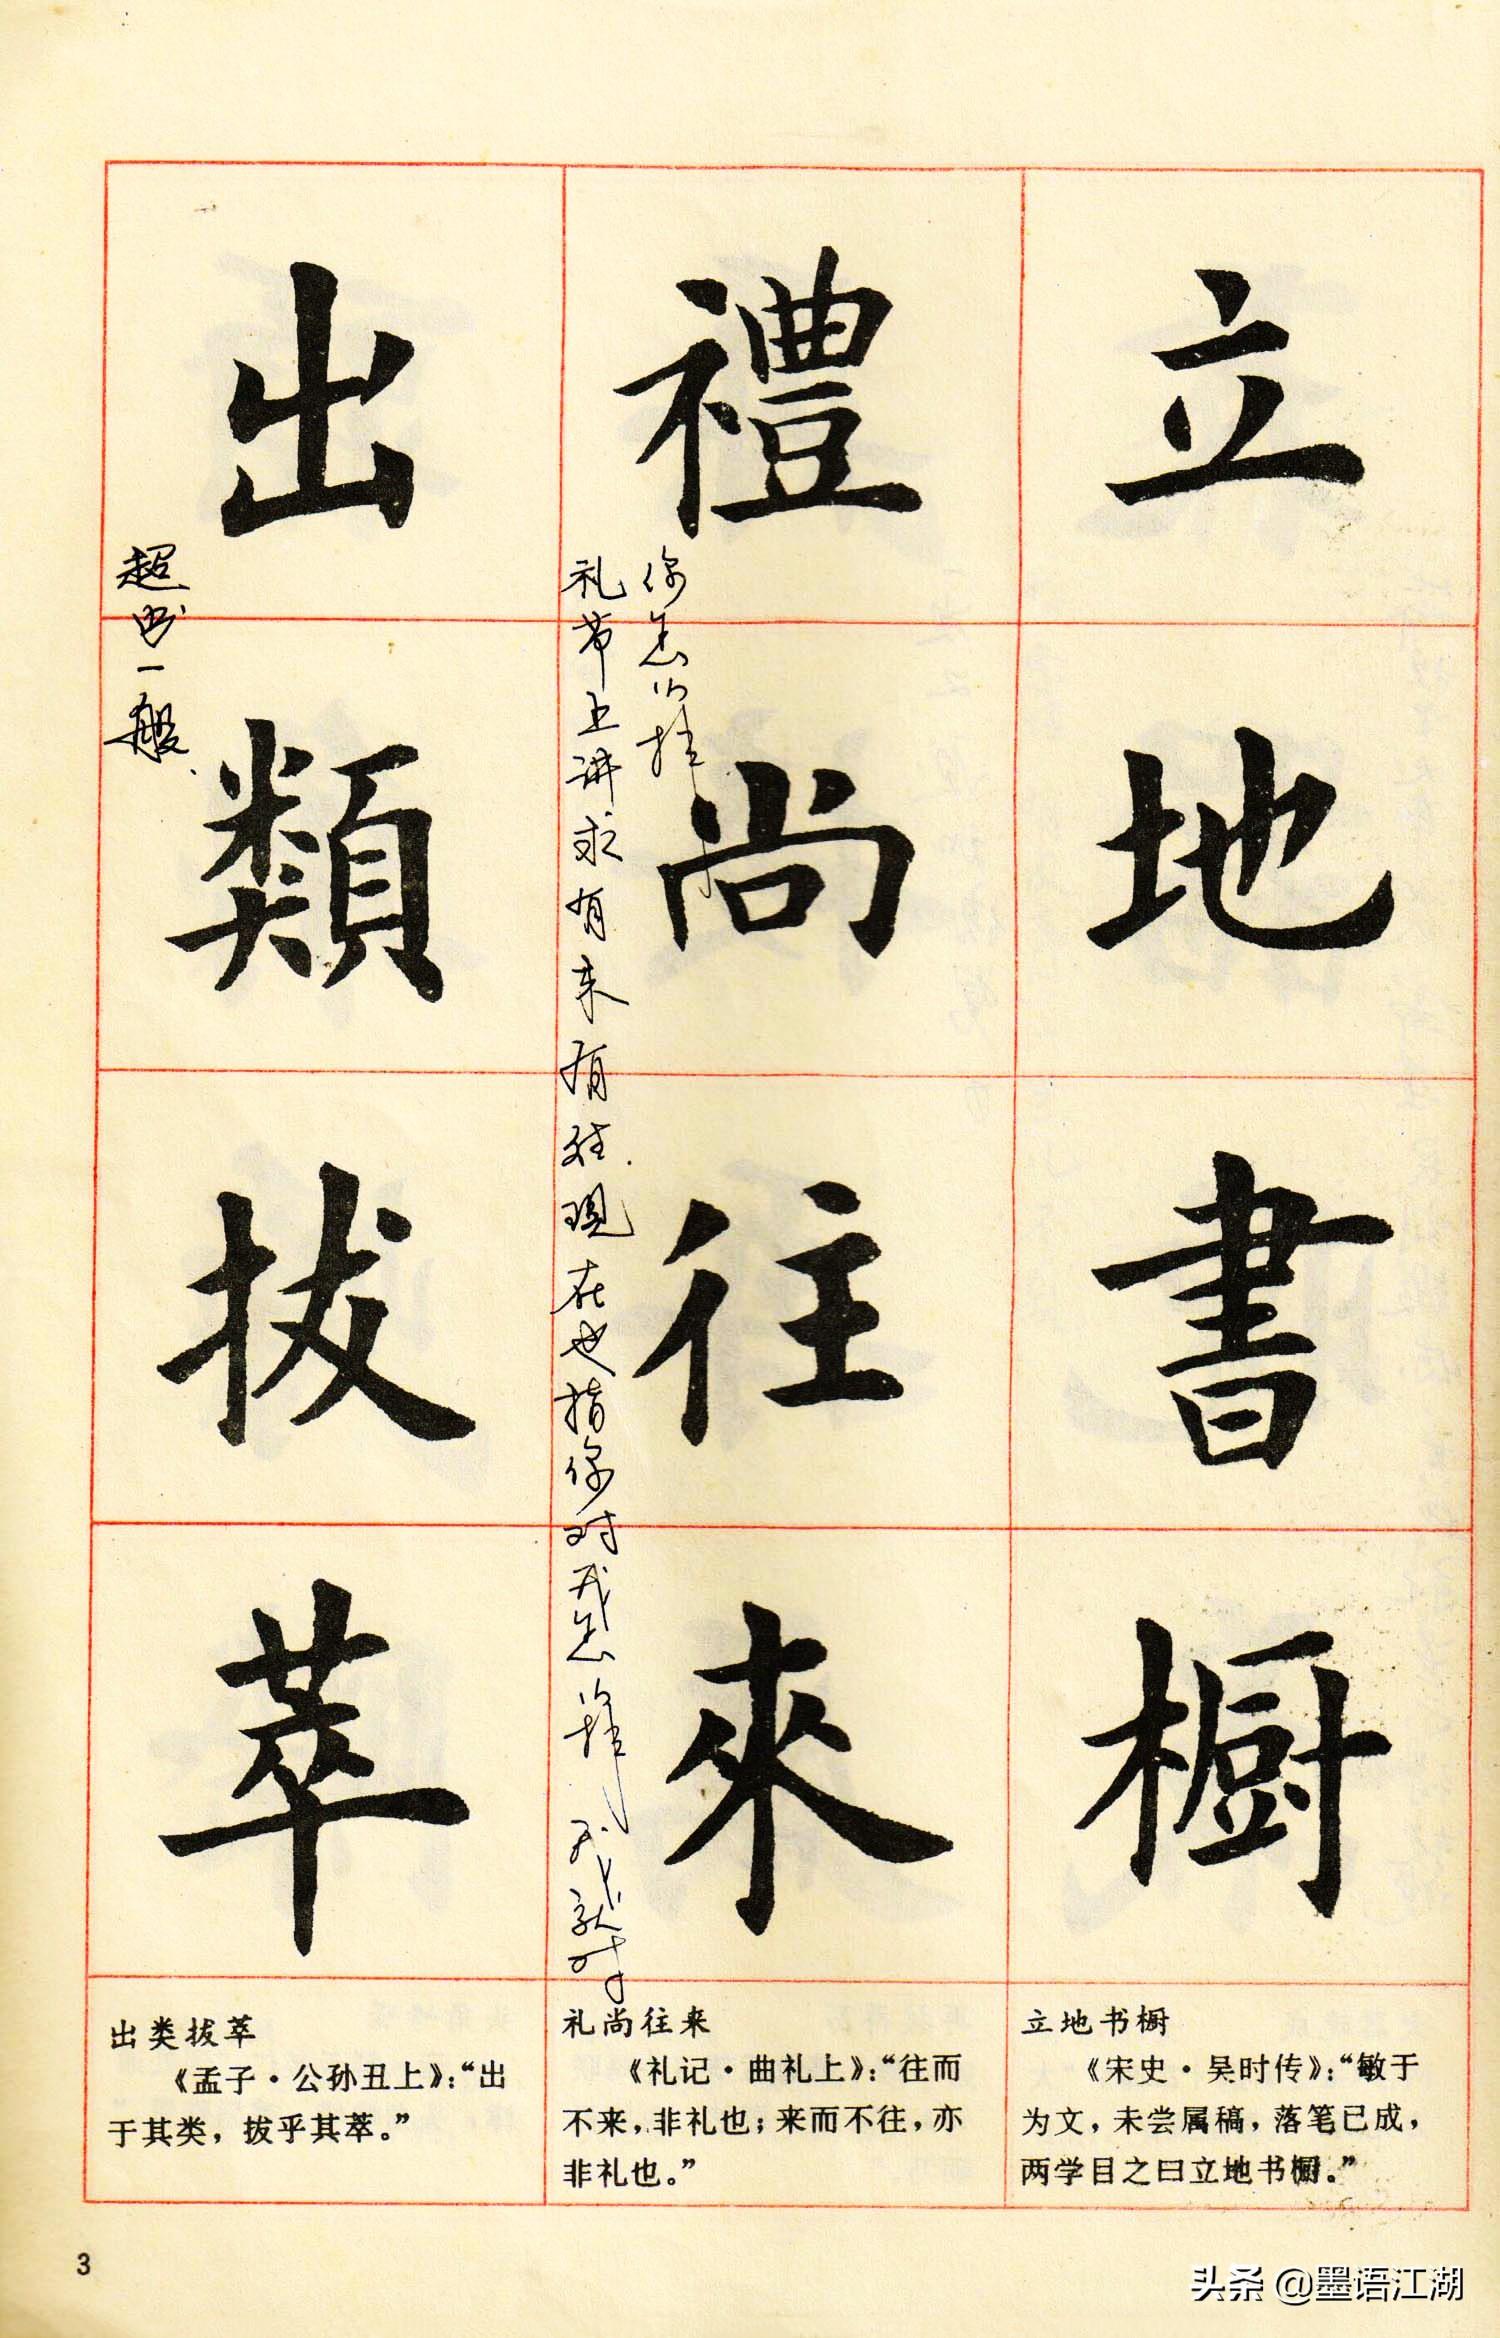 立地書橱
禮尚往來
出類拔萃
你怎么样
礼节上讲求有来有往.现在也指你对我怎么样,我就对
超出一般.
立地书橱
《宋史·吴时传》：“敏于
为文，未尝属稿，落笔已成，
两学目之曰立地书橱。”
礼尚往来
《礼记·曲礼上》：“往而
不来，非礼也；来而不往，亦
非礼也。”
出类拔萃
《孟子·公孙丑上》：“出
于其类，拔乎其萃。”
3
头条 @墨语江湖